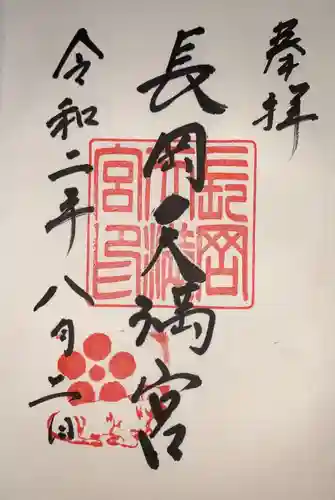 奉拝
長岡天満宮
長岡天満宮印
令和二年八月二日